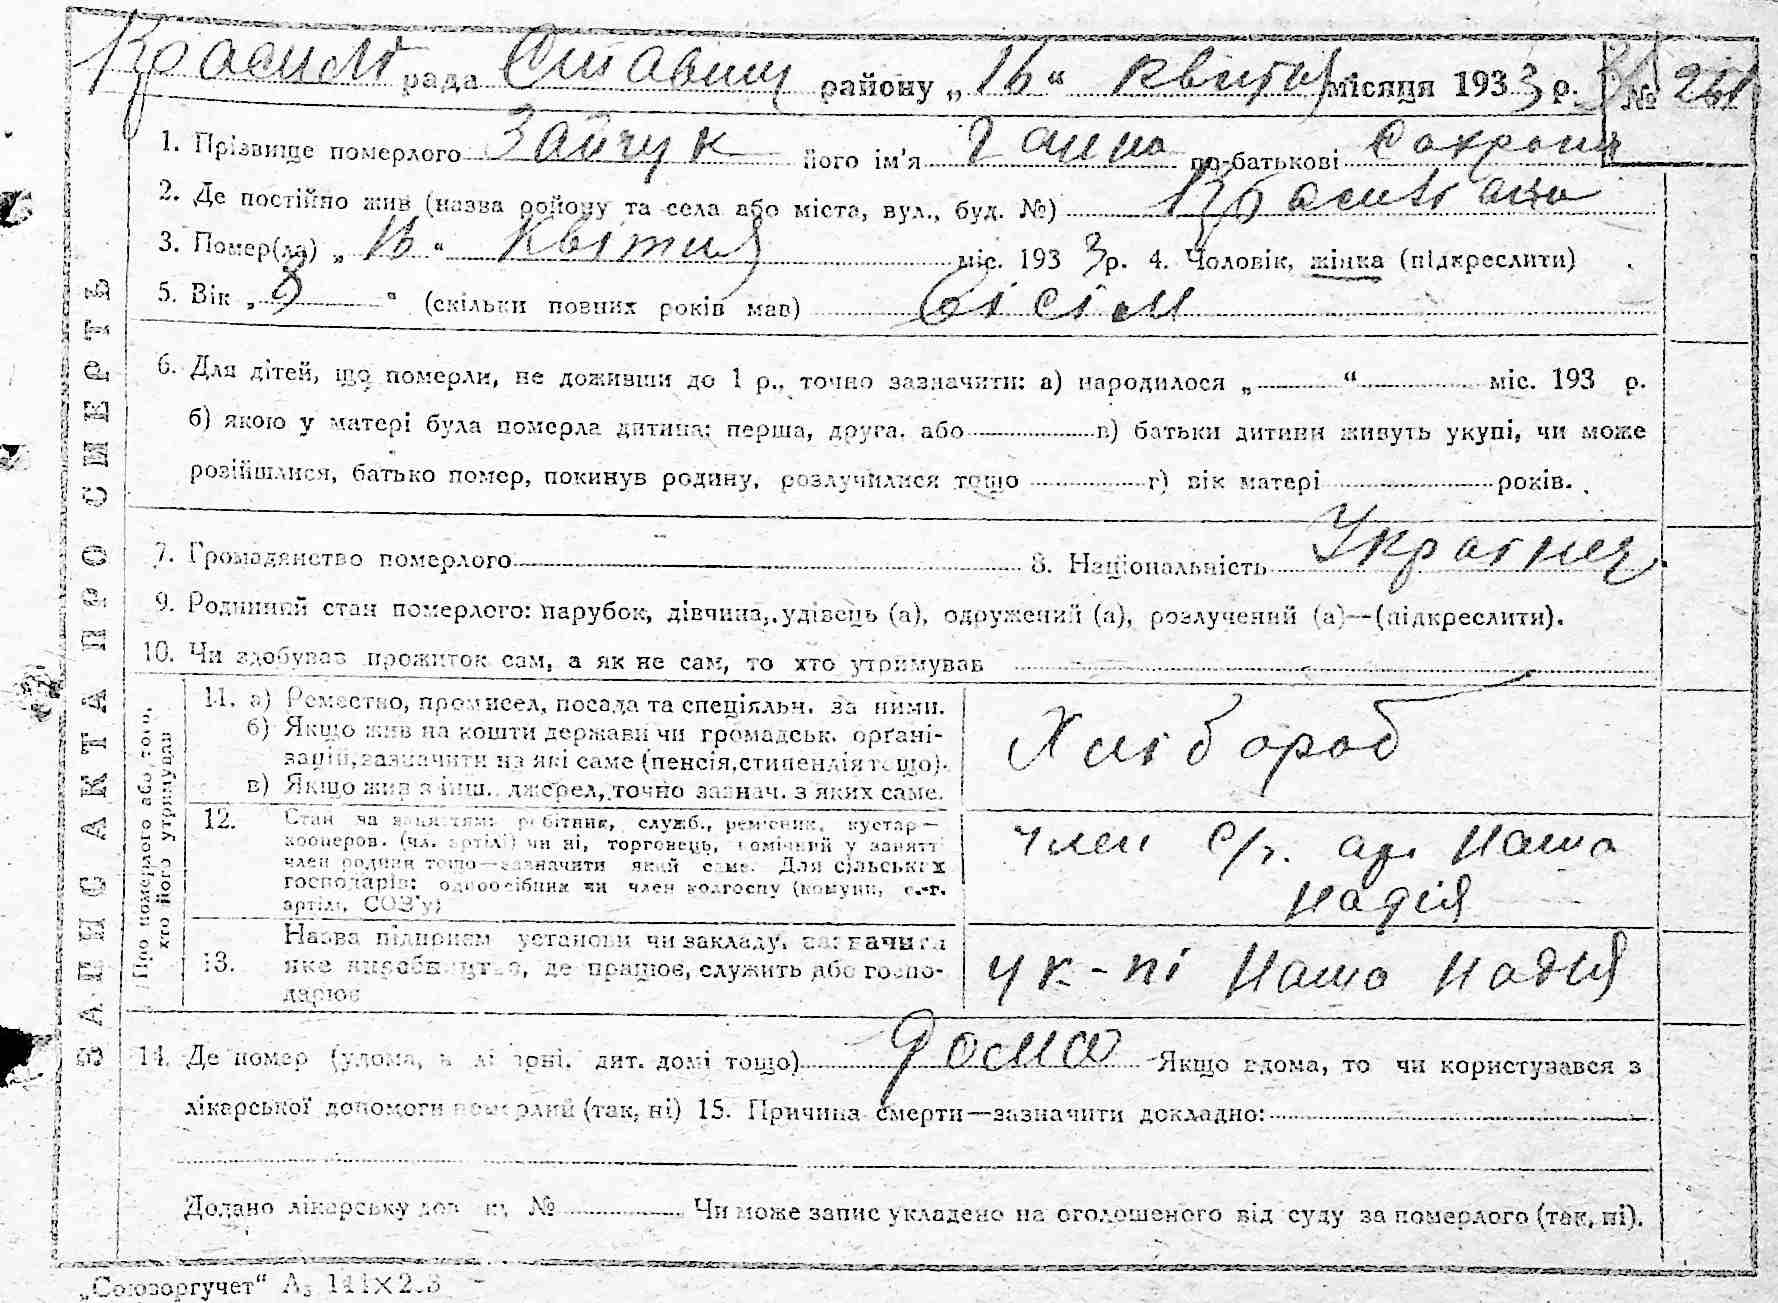 рада Ставищ району „16“ квітня місяця 1933 р. № 261
1. Прізвище померлого Зайчук його ім'я Ганна по-батькові
2. Де постійно жив (назва району та села або міста, вул., буд. №)
3. Помер(ла) „16“ квітня міс. 1933 р. 4. Чоловік, жінка (підкреслити)
5. Вік „8“ (скільки повних років мав) Вісім
6. Для дітей, що померли, не доживши до 1 р., точно зазначити: а) народилося „ “ міс. 193 р.
б) якою у матері була померла дитина: перша, друга, або в) батьки дитини живуть укупі, чи може
розійшлися, батько помер, покинув родину, розлучилися тощо г) вік матері років.
7. Громадянство померлого 8. Національність
9. Родинний стан померлого: парубок, дівчина, удівець (а), одружений (а), розлучений (а)—(підкреслити).
10. Чи здобував прожиток сам, а як не сам, то хто утримував
ЗАПИС АКТА ПРО СМЕРТЬ
Про померлого або того,
хто його утримував
11. а) Ремество, промисел, посада та спеціяльн. за ними.
б) Якщо жив на кошти держави чи громадськ. орґані-
зацій, зазначити на які саме (пенсія, стипендія тощо).
в) Якщо жив з інш. джерел, точно зазнач. з яких саме.
Хлібороб
12. Стан за заняттям: робітник, служб., ремісник, кустар—
кооперов. (чл. артілі) чи ні, торговець, помічний у занятті
член родини тощо—зазначити який саме. Для сільських
господарів: одноосібник чи член колгоспу (комуни, с.-г.
артілі, СОЗ'у)
член с/г. ар. Наша
надія
13. Назва підприєм установи чи закладу, зазначити
яке виробництво, де працює, служить або госпо-
дарює
Наша надія
14. Де помер (удома, в лікарні, дит. домі тощо) дома Якщо вдома, то чи користувався з
лікарської допомоги померлий (так, ні) 15. Причина смерти—зазначити докладно:
Додано лікарську № Чи може запис укладено на оголошеного від суду за померлого (так, ні).
„Союзоргучет“